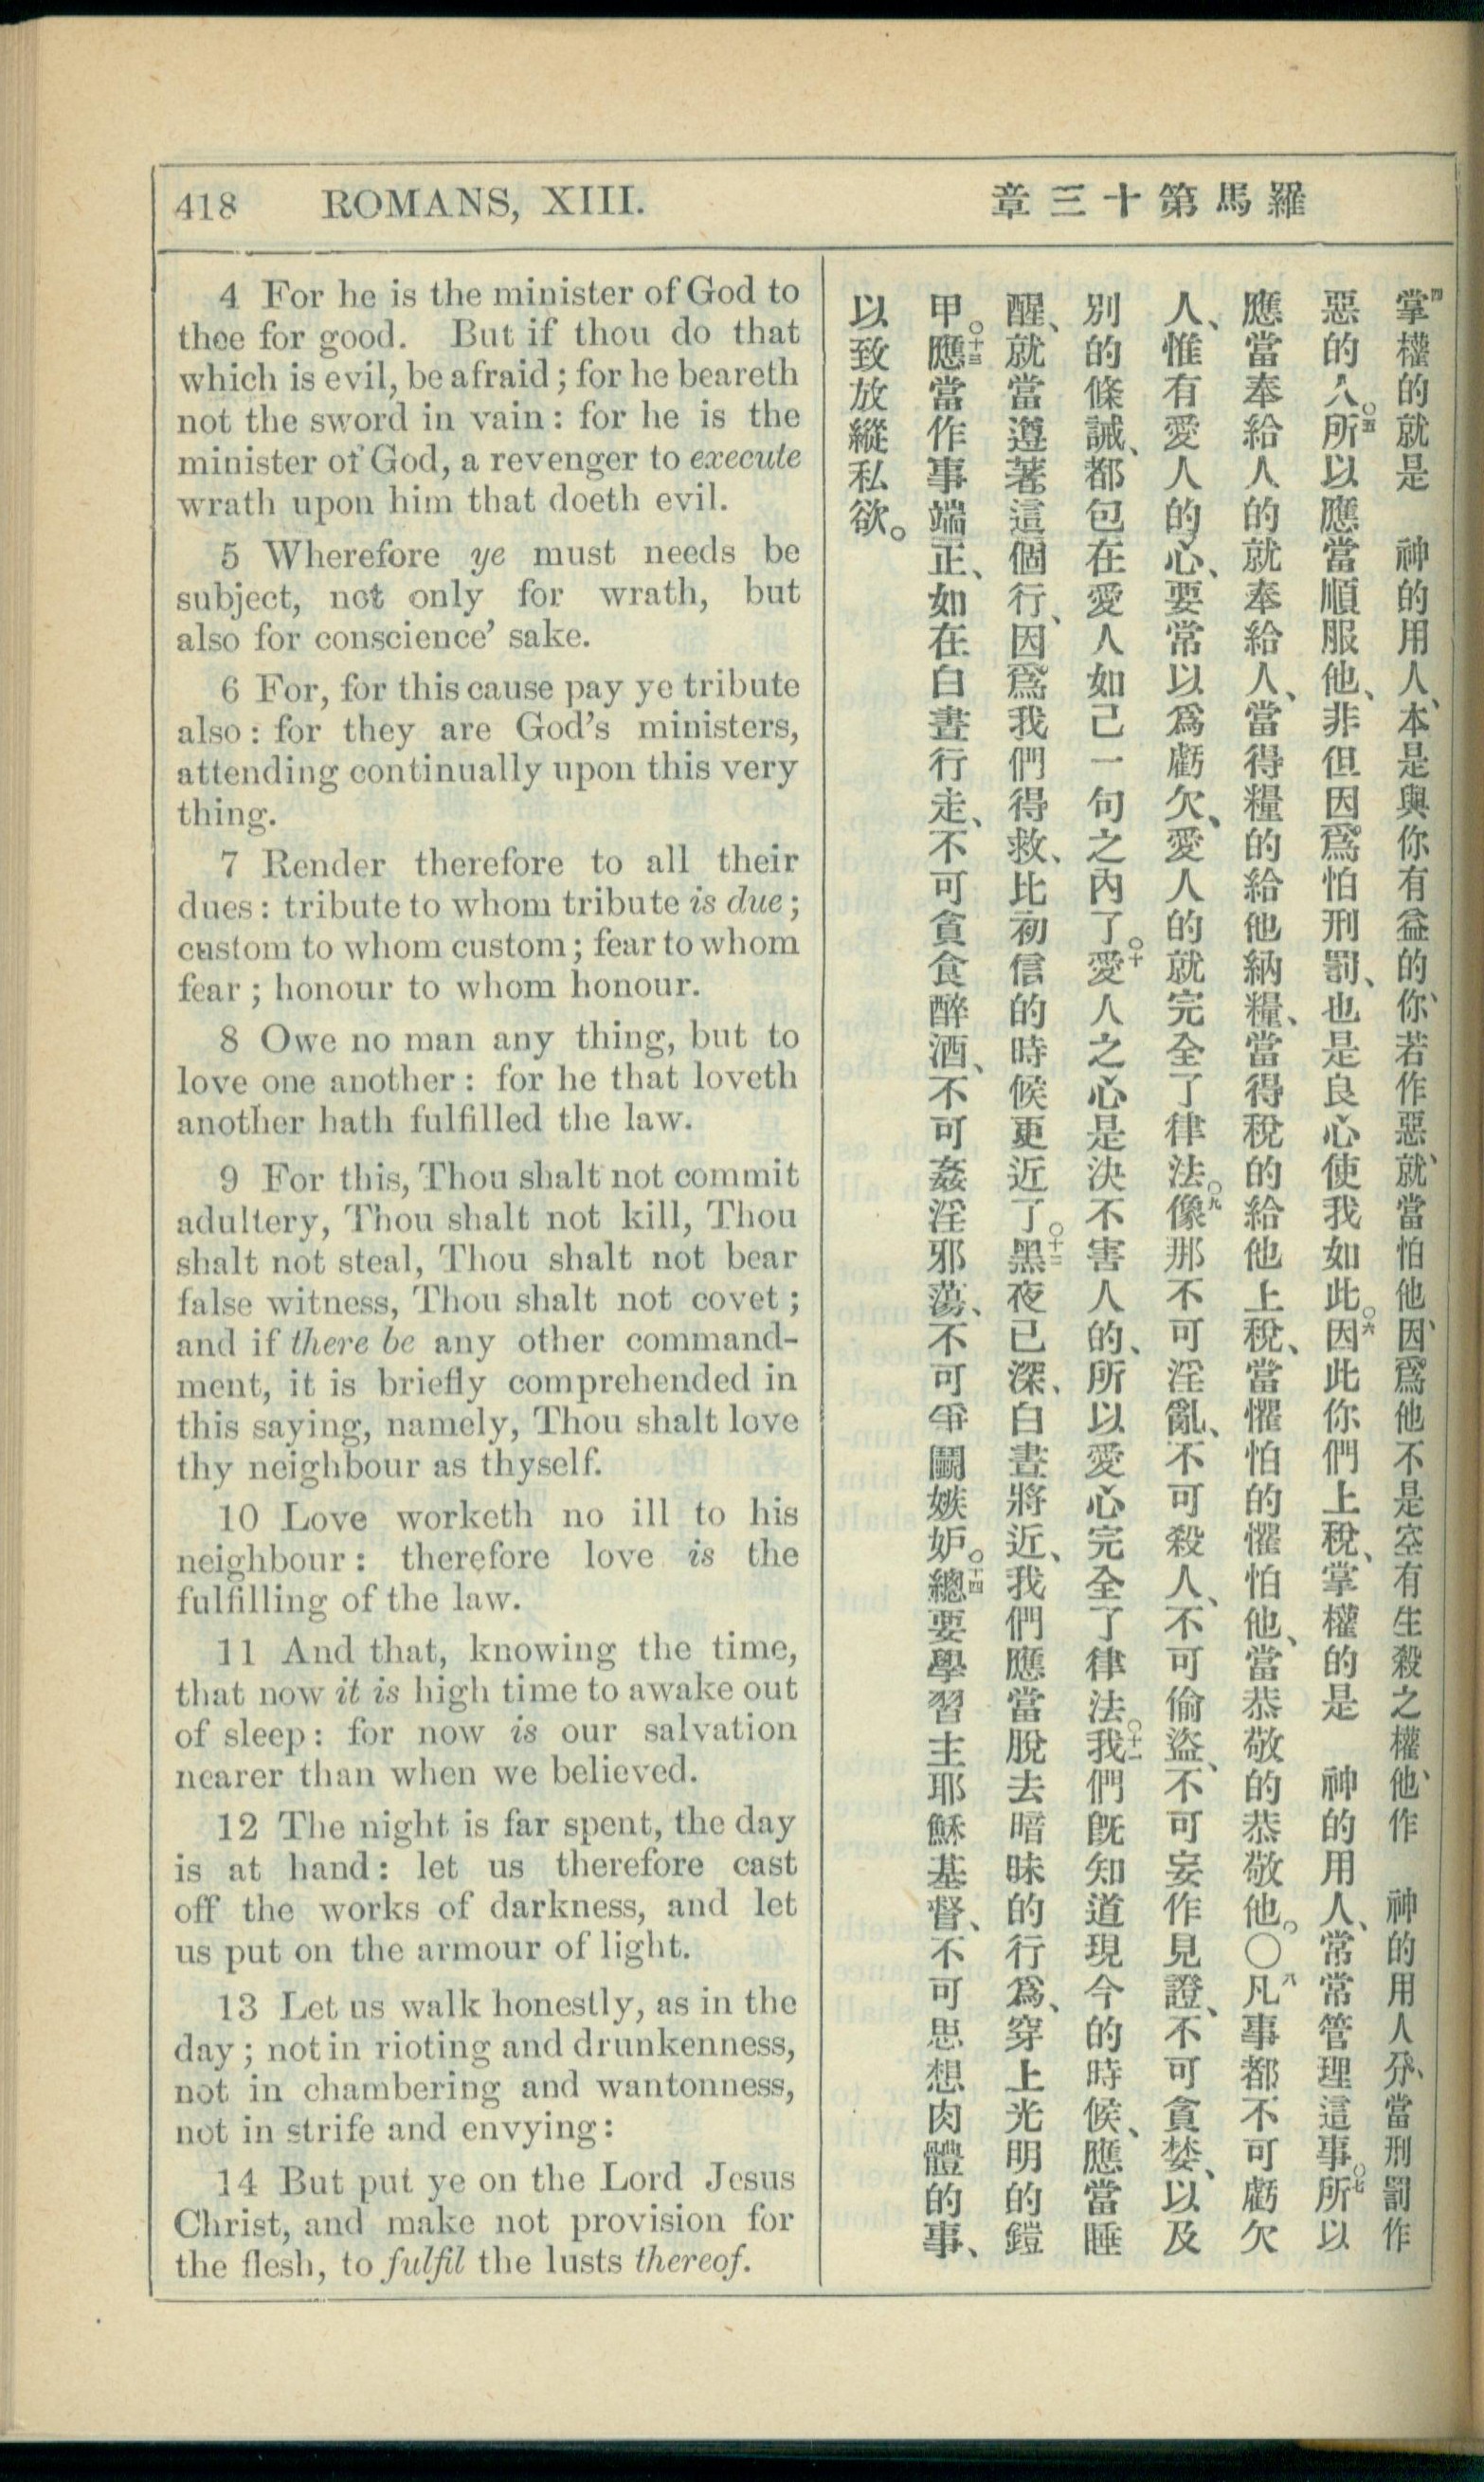 418 ROMANS, XIII.
羅馬第十三章
4 For he is the minister of God to
thee for good. But if thou do that
which is evil, be afraid; for he beareth
not the sword in vain: for he is the
minister of God, a revenger to execute
wrath upon him that doeth evil.
5 Wherefore ye must needs be
subject, not only for wrath, but
also for conscience’ sake.
6 For, for this cause pay ye tribute
also: for they are God’s ministers,
attending continually upon this very
thing.
7 Render therefore to all their
dues: tribute to whom tribute is due;
custom to whom custom; fear to whom
fear; honour to whom honour.
8 Owe no man any thing, but to
love one another: for he that loveth
another hath fulfilled the law.
9 For this, Thou shalt not commit
adultery, Thou shalt not kill, Thou
shalt not steal, Thou shalt not bear
false witness, Thou shalt not covet;
and if there be any other command-
ment, it is briefly comprehended in
this saying, namely, Thou shalt love
thy neighbour as thyself.
10 Love worketh no ill to his
neighbour: therefore love is the
fulfilling of the law.
11 And that, knowing the time,
that now it is high time to awake out
of sleep: for now is our salvation
nearer than when we believed.
12 The night is far spent, the day
is at hand: let us therefore cast
off the works of darkness, and let
us put on the armour of light.
13 Let us walk honestly, as in the
day; not in rioting and drunkenness,
not in chambering and wantonness,
not in strife and envying:
14 But put ye on the Lord Jesus
Christ, and make not provision for
the flesh, to fulfil the lusts thereof.
四掌權的就是 神的用人、本是與你有益的、你若作惡、就當怕他、因爲他不是空有生殺之權、他作 神的用人、分當刑罰作
惡的人。○五所以應當順服他、非但因爲怕刑罰、也是良心使我如此。○六因此你們上稅、掌權的是 神的用人、常常管理這事。○七所以
應當奉給人的就奉給人、當得糧的給他納糧、當得稅的給他上稅、當懼怕的懼怕他、當恭敬的恭敬他。〇八凡事都不可虧欠
人、惟有愛人的心、要常以爲虧欠、愛人的就完全了律法。○九像那不可淫亂、不可殺人、不可偷盜、不可妄作見證、不可貪婪、以及
別的條誡、都包在愛人如己一句之內了。○十愛人之心是決不害人的、所以愛心完全了律法。○十一我們旣知道現今的時候、應當睡
醒、就當遵著這個行、因爲我們得救、比初信的時候更近了。○十二黑夜已深、白晝將近、我們應當脫去暗昧的行爲、穿上光明的鎧
甲。○十三應當作事端正、如在白晝行走、不可貪食醉酒、不可姦淫邪蕩、不可爭鬭嫉妒。○十四總要學習主耶穌基督、不可思想肉體的事、
以致放縱私欲。